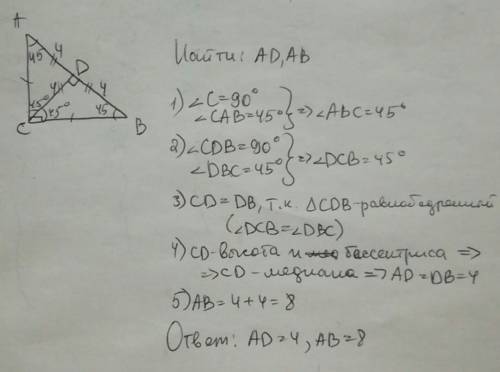 A
45
4
D
4
4
45°
45°
45
C
B
Найти: AD, AB
1) ∠C=90°
∠CAB=45° } => ∠ABC=45°
2) ∠CDB=90°
∠DBC=45° } => ∠DCB=45°
3) CD=DB, т.к. △CDB-равнобедренный
(∠DCB=∠DBC)
4) CD-высота и бессектриса =>
=> CD-медиана => AD=DB=4
5) AB=4+4=8
Ответ: AD=4, AB=8